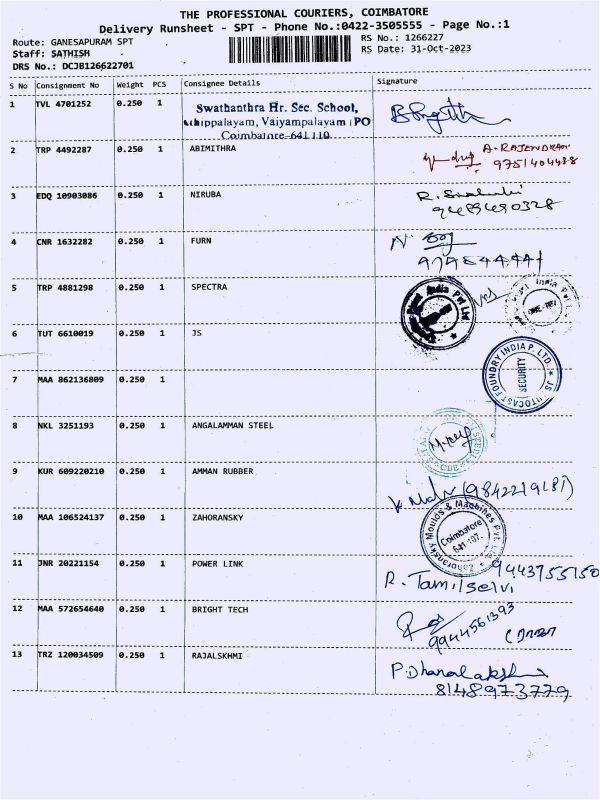 THE PROFESSIONAL COURIERS, COIMBATORE
Delivery Runsheet - SPT - Phone No.:0422-3505555 - Page No.:1
Route: GANESAPURAM SPT
Staff: SATHISH
DRS No.: DCJB126622701
RS No.: 1266227
RS Date: 31-Oct-2023
S No Consignment No Weight PCS Consignee Details Signature
1 TVL 4701252 0.250 1 Swathanthra Hr. Sec. School,
Vaiyampalayam (PO
Coimbatore-641 110
2 TRP 4492287 0.250 1 ABIMITHRA A-RAJENDRAN
9751404488
3 EDQ 10903086 0.250 1 NIRUBA R.
9489490328
4 CNR 1632282 0.250 1 FURN N
5 TRP 4881298 0.250 1 SPECTRA India Pvt Ltd
6 TUT 6610019 0.250 1 JS
7 MAA 862136809 0.250 1 JS AUTOCAST FOUNDRY INDIA P. LTD. SECURITY
8 NKL 3251193 0.250 1 ANGALAMMAN STEEL
9 KUR 609220210 0.250 1 AMMAN RUBBER (9842219181)
10 MAA 106524137 0.250 1 ZAHORANSKY Zahoransky Moulds & Machines Pvt. Ltd. Coimbatore 641 107.
11 JNR 20221154 0.250 1 POWER LINK R. Tamilselvi 9443755150
12 MAA 572654640 0.250 1 BRIGHT TECH 9944561393
13 TRZ 120034509 0.250 1 RAJALSKHMI P.Dhanalakshmi
8148973779